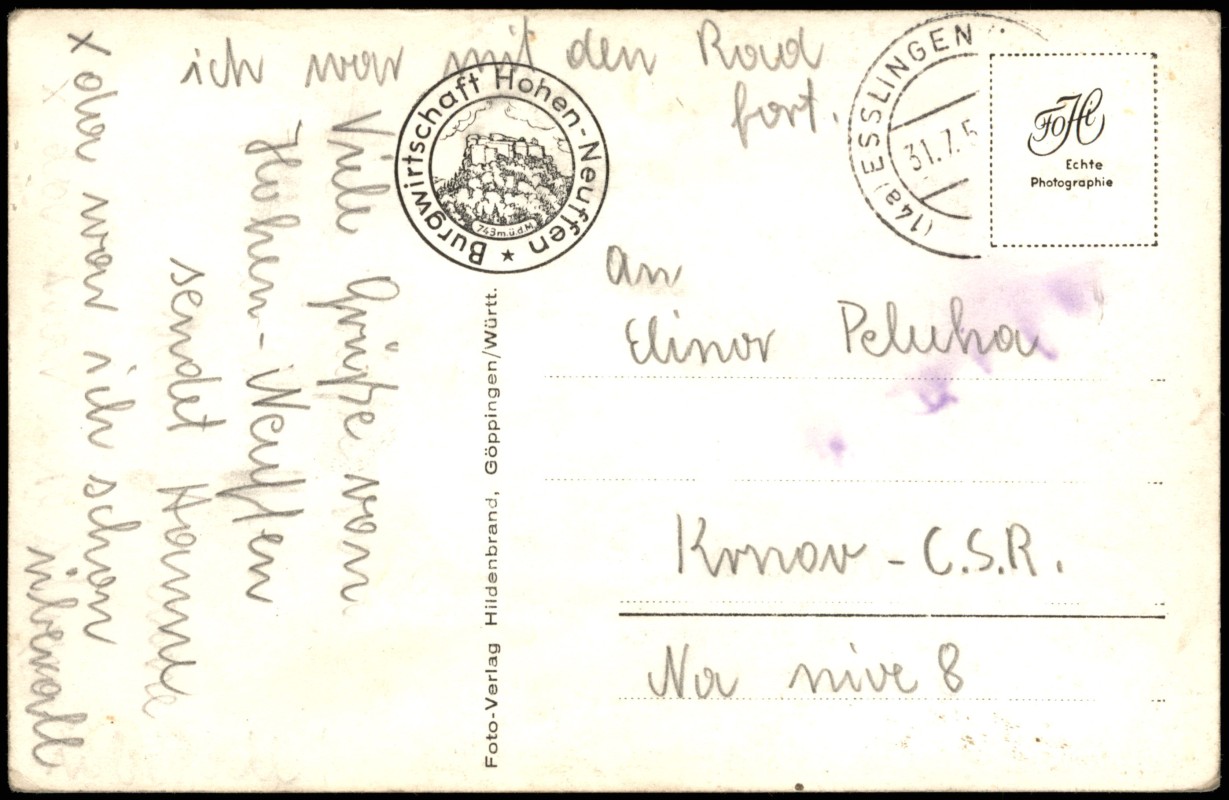 ich war mit den Rad
fort.
Viele Grüße von
Hohen-Neuffen
sendet Hannele
x da war ich schon
überall
Burgwirtschaft Hohen-Neuffen
743 m.ü.d.M.
(14a) ESSLINGEN
31.7.5
FoHi
Echte
Photographie
Foto-Verlag Hildenbrand, Göppingen/Württ.
An
Elinor Peluha
Krnov - C.S.R.
Na nive 8